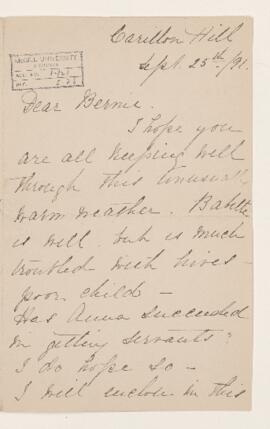 Carillon Hill
Sept. 25th/91.
McGILL UNIVERSITY
ARCHIVES
ACC. NO.
REF.
Dear Bernie.
I hope you
are all keeping well
through this unusually
warm weather. Babette
is well. but is much
troubled with hives -
poor child -
Has Anna succeeded
in getting servants?
I do hope so -
I will enclose in this